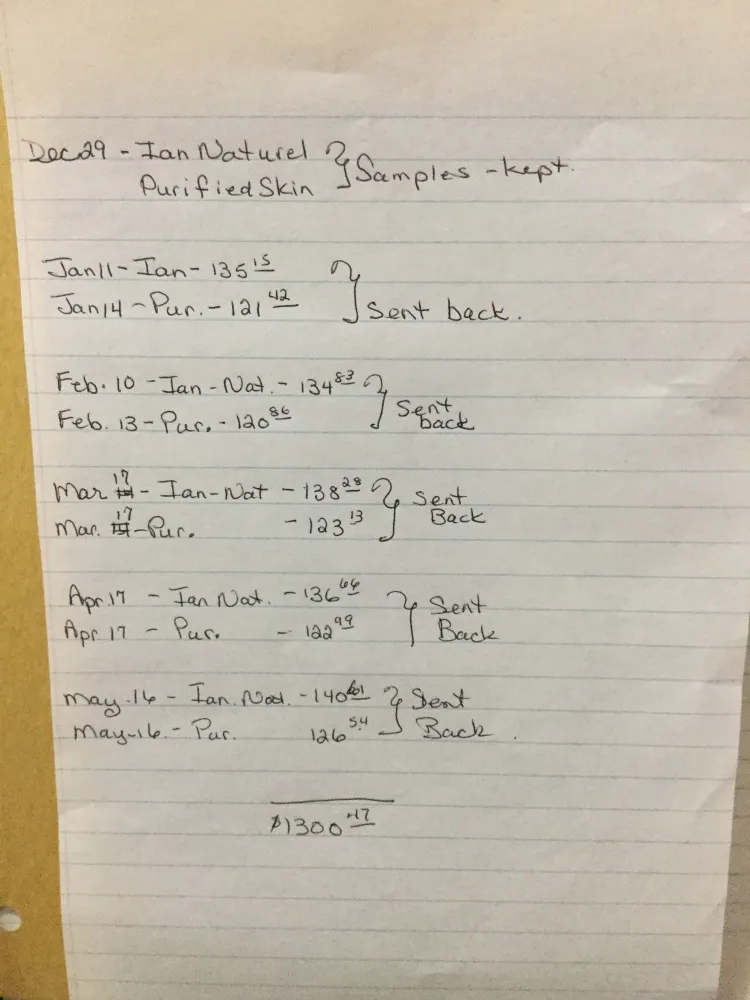 Dec 29 - Ian Naturel
Purified Skin } Samples - kept.
Jan 11 - Ian - 135 15
Jan 14 - Pur. - 121 42 } Sent back.
Feb. 10 - Ian - Nat. - 134 83
Feb. 13 - Pur. - 120 86 } Sent back
Mar 17 - Ian - Nat - 138 28 } Sent
Mar. 17 - Pur. - 123 13 Back
Apr. 17 - Ian Nat. - 136 66 } Sent
Apr 17 - Pur. - 122 99 Back
May. 16 - Ian. Nat. - 140 61 } Sent
May - 16. - Pur. 126 54 Back.
$1300 47